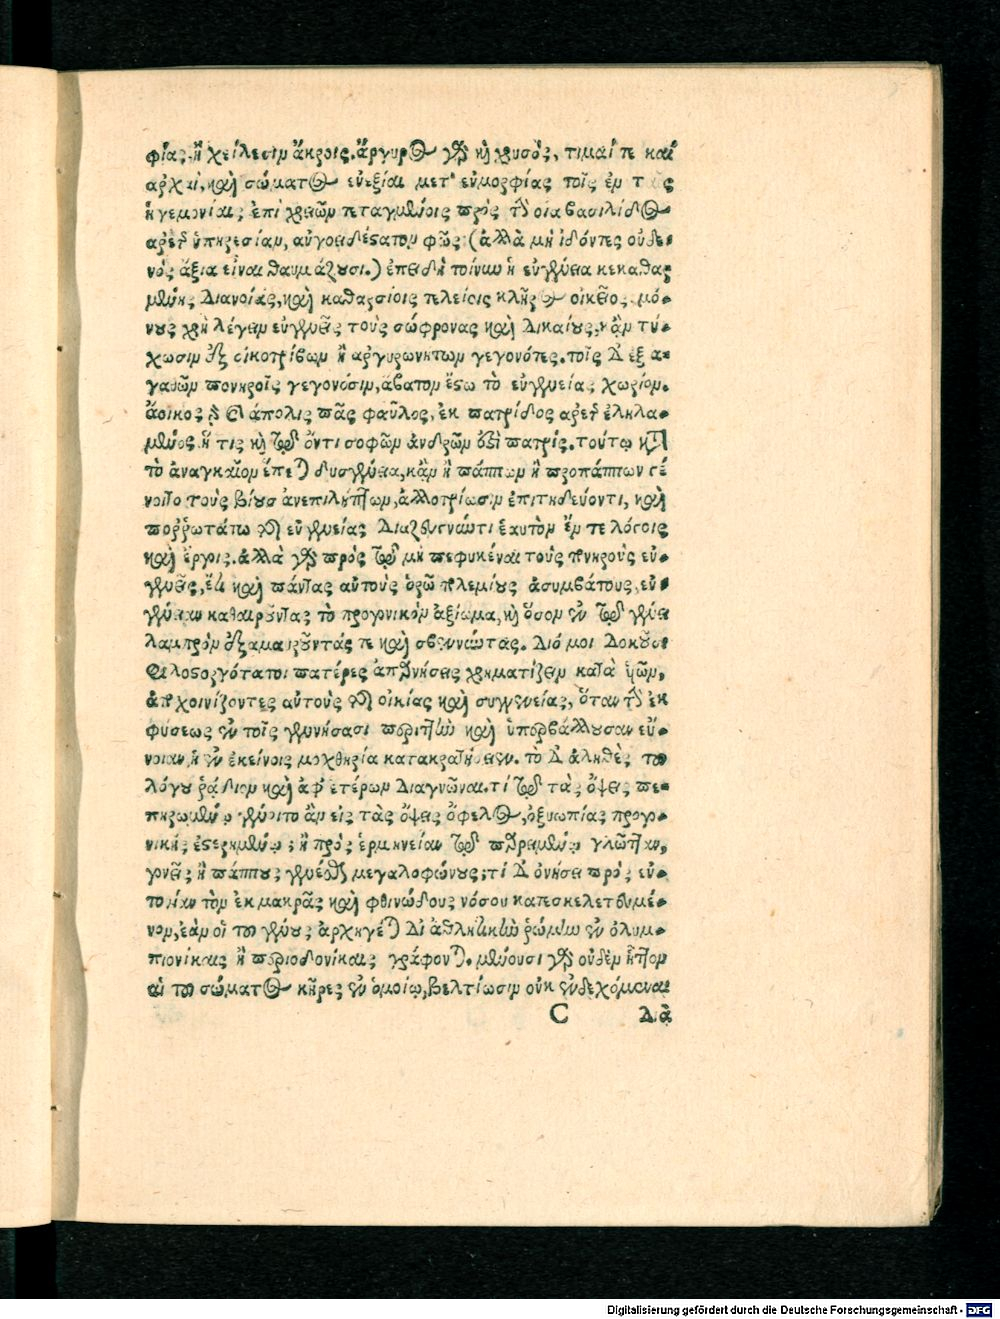 φίας, ἢ χείλεσιν ἄκροις. ἄργυρος γὰρ καὶ χρυσὸς, τιμαί τε καὶ
ἀρχαὶ, καὶ σώματος εὐεξίαι μετ' εὐμορφίας τοῖς ἐν ταῖς
ἡγεμονίαις ἐπὶ χρειῶν τεταγμένοις πρὸς τὴν οἷα βασιλίδος
ἀρετῆς ὑπηρεσίαν, αὐγοειδέστατον φῶς (ἀλλὰ μὴ ἰδόντες οὐδε-
νὸς ἄξια εἶναι θαυμάζουσι.) ἐπειδὴ τοίνυν ἡ εὐγένεια κεκαθαρ
μένης διανοίας, καὶ καθαρσίοις τελείοις κλῆρος οἰκεῖος, μό-
νους χρὴ λέγειν εὐγενεῖς τοὺς σώφρονας καὶ δικαίους, κἂν τύ-
χωσιν ἐξ οἰκοτρίβων ἢ ἀργυρωνήτων γεγονότες. τοῖς δ' ἐξ ἀ-
γαθῶν πονηροῖς γεγονόσιν, ἄβατον ἔστω τὸ εὐγενείας χωρίον.
ἄοικος γὰρ καὶ ἄπολις πᾶς φαῦλος, ἐκ πατρίδος ἀρετῆς ἐληλα-
μένος ἥ τις καὶ τῷ ὄντι σοφῶν ἀνδρῶν ἐστὶ πατρίς. τούτῳ κατὰ
τὸ ἀναγκαῖον ἕπεται δυσγένεια, κἂν ἢ πάππων ἢ προπάππων γέ
νοιτο τοὺς βίους ἀνεπιλήπτων, ἀλλοτρίωσιν ἐπιτηδεύοντι, καὶ
ποῤῥωτάτω τῆς εὐγενείας διαζευγνύντι ἑαυτὸν ἔν τε λόγοις
καὶ ἔργοις. ἀλλὰ γὰρ πρὸς τῷ μὴ πεφυκέναι τοὺς πονηροὺς εὐ-
γενεῖς, ἔτι καὶ πάντας αὐτοὺς ὁρῶ πολεμίους ἀσυμβάτους, εὐ-
γένειαν καθαιροῦντας τὸ προγονικὸν ἀξίωμα, καὶ ὅσον ἐν τῷ γένει
λαμπρὸν ἐξαμαυροῦντάς τε καὶ σβεννύντας. Διό μοι δοκοῦσι
φιλοστοργότατοι πατέρες ἀποῤῥήσεις χρηματίζειν κατὰ υἱῶν,
ἀποσχοινίζοντες αὐτοὺς τῆς οἰκίας καὶ συγγενείας, ὅταν τὴν ἐκ
φύσεως ἐν τοῖς γεννήσασι περιττὴν καὶ ὑπερβάλλουσαν εὔ-
νοιαν ἡ ἐν ἐκείνοις μοχθηρία κατακρατήσειεν. τὸ δ' ἀληθὲς τοῦ
λόγου ῥᾴδιον καὶ ἀφ' ἑτέρων διαγνῶναι. τί τῷ τὰς ὄψεις πε-
πηρωμένῳ γένοιτο ἂν εἰς τὰς ὄψεις ὄφελος, ὀξυωπίας προγο-
νικῆς ἐστερημένῳ; ἢ πρὸς ἑρμηνείαν τῷ πεπηρωμένῳ γλῶτταν,
γονεῖς ἢ πάππους γενέσθαι μεγαλοφώνους; τί δ' ὀνήσει πρὸς εὐ-
τονίαν τὸν ἐκ μακρᾶς καὶ φθινώδους νόσου κατεσκελετευμέ-
νον, ἐὰν οἱ τοῦ γένους ἀρχηγέται δι' ἀθλητικὴν ῥώμην ἐν ὀλυμ-
πιονίκαις ἢ περιοδονίκαις γράφονται. μένουσι γὰρ οὐδὲν ἧττον
αἱ τοῦ σώματος κῆρες ἐν ὁμοίῳ, βελτίωσιν οὐκ ἐνδεχόμεναι
C διὰ
Digitalisierung gefördert durch die Deutsche Forschungsgemeinschaft - DFG